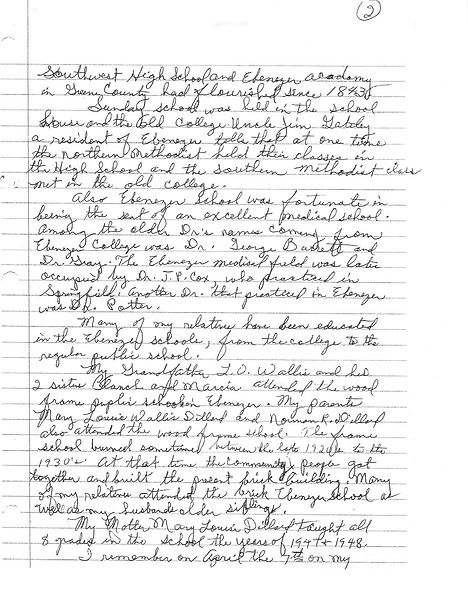 2
Southwest High School and Ebenezer academy
in Greene County had flourished since 1843.
Sunday school was held in the school
house and the old College Uncle Jim Gately
a resident of Ebenezer tells that at one time
the Northern Methodist held their classes in
the High School and the Southern Methodist class
met in the old college.
Also Ebenezer School was fortunate in
being the seat of an excellent medical school.
Among the older Dr's names coming from
Ebenezer College was Dr. George Barrett and
Dr Gray. The Ebenezer medical field was later
occupied by Dr. J.P. Cox, who practiced in
Springfield. Another Dr. that practiced in Ebenezer
was Dr. Potter.
Many of my relatives have been educated
in the Ebenezer schools, from the college to the
regular public school.
My Grandfather L.O. Wallis and his
2 sisters Blanch and Marcia attended the wood
frame public school in Ebenezer. My parents
Mary Louis Wallis Dillard and Norman R. Dillard
also attended the wood frame school. The frame
school burned sometime between the late 1920's to the
1930's. At that time the community people got
together and built the present brick building. Many
of my relatives attended the brick Ebenezer School as
well as my husbands older siblings.
My Mother Mary Louis Dillard taught all
8 grades in the school the years of 1947 & 1948.
I remember on April the 7th on my